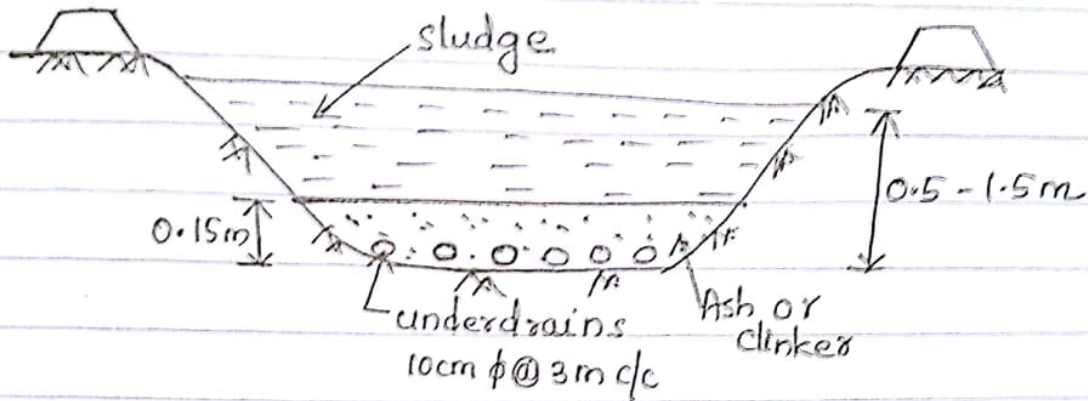 sludge
0.5 - 1.5m
0.15m
underdrains
10cm ϕ @ 3m c/c
Ash or
clinker